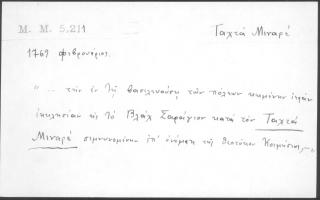 M. M. 5.211
Ταχτά Μιναρέ
1769 φεβρουάριος.
"... τὴν ἐν τῇ βασιλευούσῃ τῶν πόλεων κειμένην ἱερὰν
ἐκκλησίαν εἰς τὸ Βλὰχ Σαράγιον κατὰ τὸν Ταχτᾶ
Μιναρὲ σεμνυνομένην ἐπ' ὀνόματι τῆς Θεοτόκου Κοιμήσεως